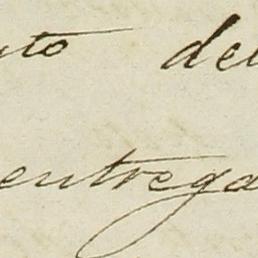 to del
entrega